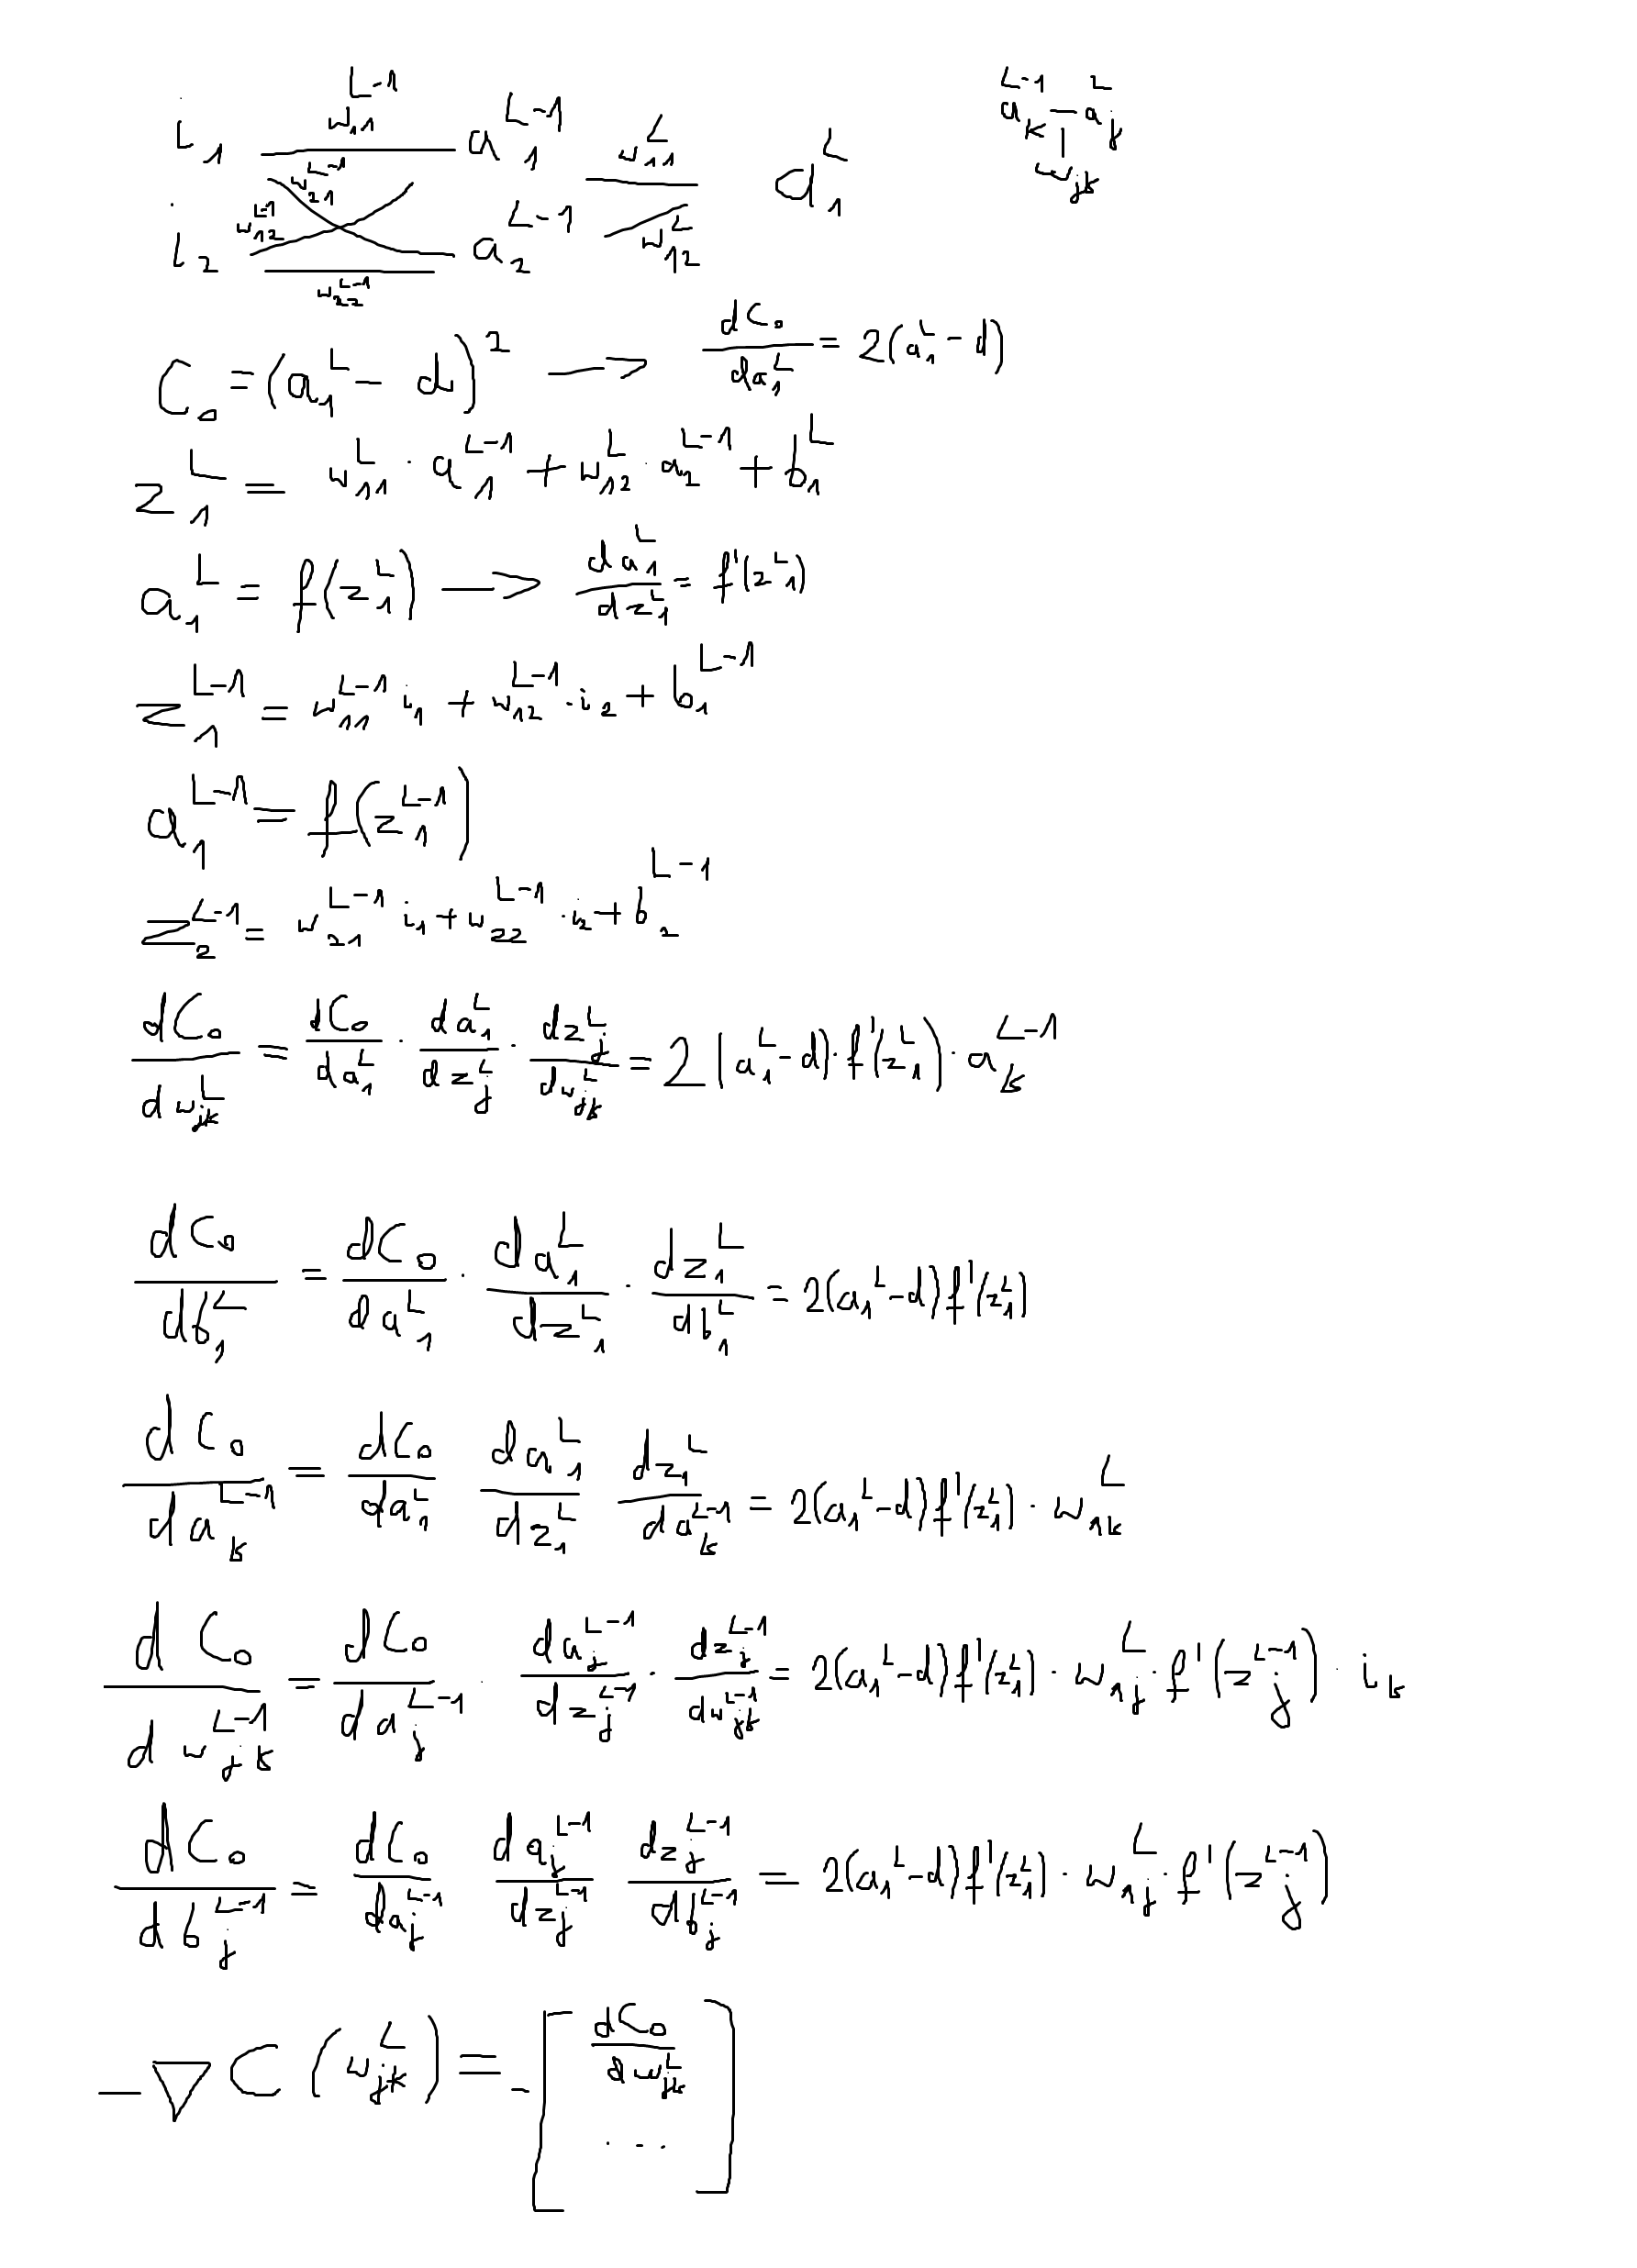 i_1 w_{11}^{L-1} a_1^{L-1} w_{11}^L a_1^L
w_{21}^{L-1}
w_{12}^{L-1}
i_2 w_{22}^{L-1} a_2^{L-1} w_{12}^L
a_k^{L-1} — a_j^L
w_{jk}
C_0 = (a_1^L - d)^2 → dC_0/da_1^L = 2(a_1^L - d)
z_1^L = w_{11}^L · a_1^{L-1} + w_{12}^L · a_2^{L-1} + b_1^L
a_1^L = f(z_1^L) → da_1^L/dz_1^L = f'(z_1^L)
z_1^{L-1} = w_{11}^{L-1} i_1 + w_{12}^{L-1} · i_2 + b_1^{L-1}
a_1^{L-1} = f(z_1^{L-1})
z_2^{L-1} = w_{21}^{L-1} i_1 + w_{22}^{L-1} · i_2 + b_2^{L-1}
dC_0/dw_{jk}^L = dC_0/da_1^L · da_1^L/dz_j^L · dz_j^L/dw_{jk}^L = 2(a_1^L - d) · f'(z_1^L) · a_k^{L-1}
dC_0/db_1^L = dC_0/da_1^L · da_1^L/dz_1^L · dz_1^L/db_1^L = 2(a_1^L - d) f'(z_1^L)
dC_0/da_k^{L-1} = dC_0/da_1^L da_1^L/dz_1^L dz_1^L/da_k^{L-1} = 2(a_1^L - d) f'(z_1^L) · w_{1k}^L
dC_0/dw_{jk}^{L-1} = dC_0/da_j^{L-1} · da_j^{L-1}/dz_j^{L-1} · dz_j^{L-1}/dw_{jk}^{L-1} = 2(a_1^L - d) f'(z_1^L) · w_{1j}^L · f'(z_j^{L-1}) · i_k
dC_0/db_j^{L-1} = dC_0/da_j^{L-1} da_j^{L-1}/dz_j^{L-1} dz_j^{L-1}/db_j^{L-1} = 2(a_1^L - d) f'(z_1^L) · w_{1j}^L · f'(z_j^{L-1})
-∇C(w_{jk}^L) = -[dC_0/dw_{jk}^L
...]